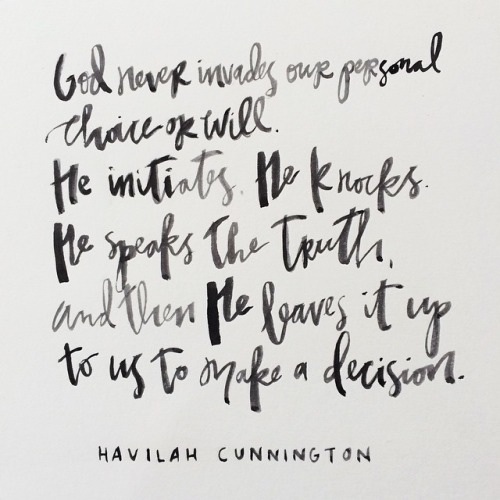 God never invades our personal
choice or will.
He initiates. He knocks.
He speaks the truth,
and then He leaves it up
to us to make a decision.
HAVILAH CUNNINGTON